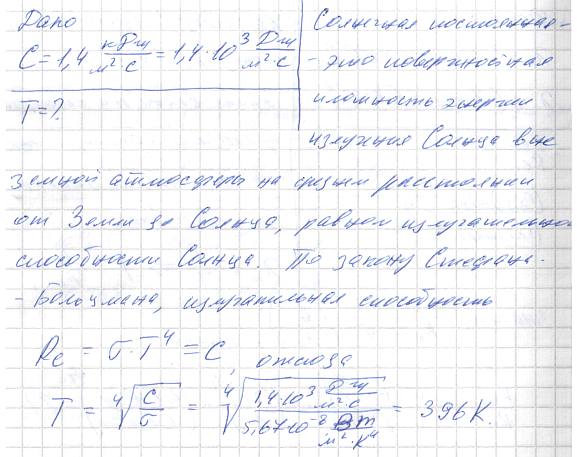 Дано
C = 1,4 кДж/м²·с = 1,4·10³ Дж/м²·с
T = ?
Солнечная постоянная -
- это поверхностная
плотность энергии
излучения Солнца вне
земной атмосферы на среднем расстоянии
от Земли до Солнца, равном излучательной
способности Солнца. По закону Стефана-
- Больцмана, излучательная способность
Re = σ·T⁴ = C, отсюда
T = ⁴√(C/σ) = ⁴√(1,4·10³ Дж/м²·с / 5,67·10⁻⁸ Вт/м²·К⁴) = 396 К.